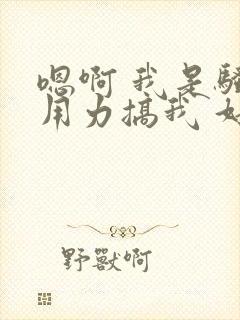 嗯啊 我是骚
用力搞我 好
野獸啊